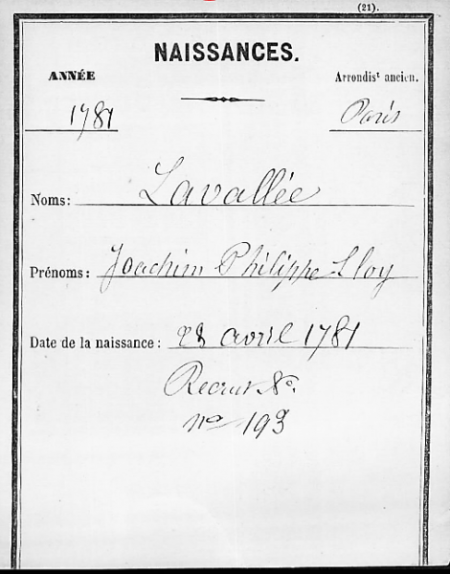 (21).
NAISSANCES.
ANNÉE
Arrondisᵗ ancien.
1781
Paris
Noms: Lavallée
Prénoms: Joachim Philippe
Date de la naissance: 23 avril 1781
Recrut
nº 193